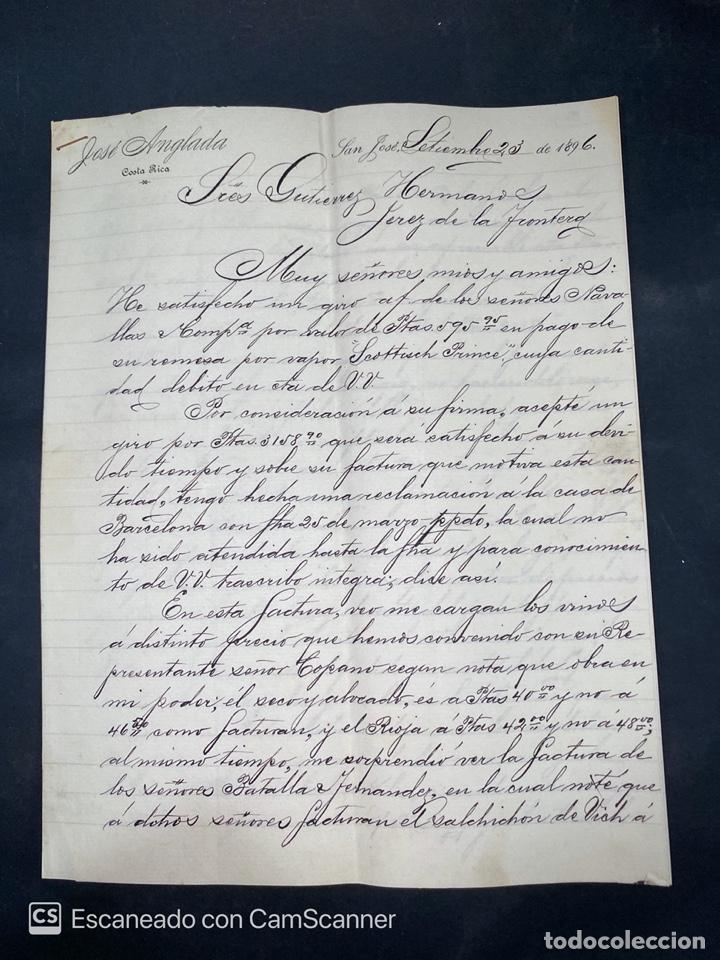 José Anglada
Costa Rica
San José, Setiembre 23 de 1896.
Sres Gutierrez Hermanos
Jerez de la Frontera
Muy señores mios y amigos:
He satisfecho un giro a/f. de los señores Nava-
llas & Compª por valor de Ptas. 595 95 en pago de
su remesa por vapor "Scottisch Prince", cuya canti-
dad debito en cta de V.V.
Por consideración á su firma, acepté un
giro por Ptas. 3158,90 que será satisfecho á su devi-
do tiempo y sobre su factura que motiva esta can-
tidad, tengo hecha una reclamación á la casa de
Barcelona con fha 25 de marzo ppdo, la cual no
ha sido atendida hasta la fha y para conocimien-
to de V.V. trascribo integra; dice así.
En esta factura, veo me cargan los vinos
á distinto precio que hemos convenido con su Re-
presentante señor Copano segun nota que obra en
mi poder; él seco y abocado, és a Ptas 40 00 y no á
46 50 como facturan, y el Rioja á Ptas 42 00 y no á 48 00;
al mismo tiempo, me sorprendió ver la factura de
los señores Batalla & Fernandez, en la cual noté que
á dchos señores facturan el Salchichón de Vich á
CS Escaneado con CamScanner
todocoleccion